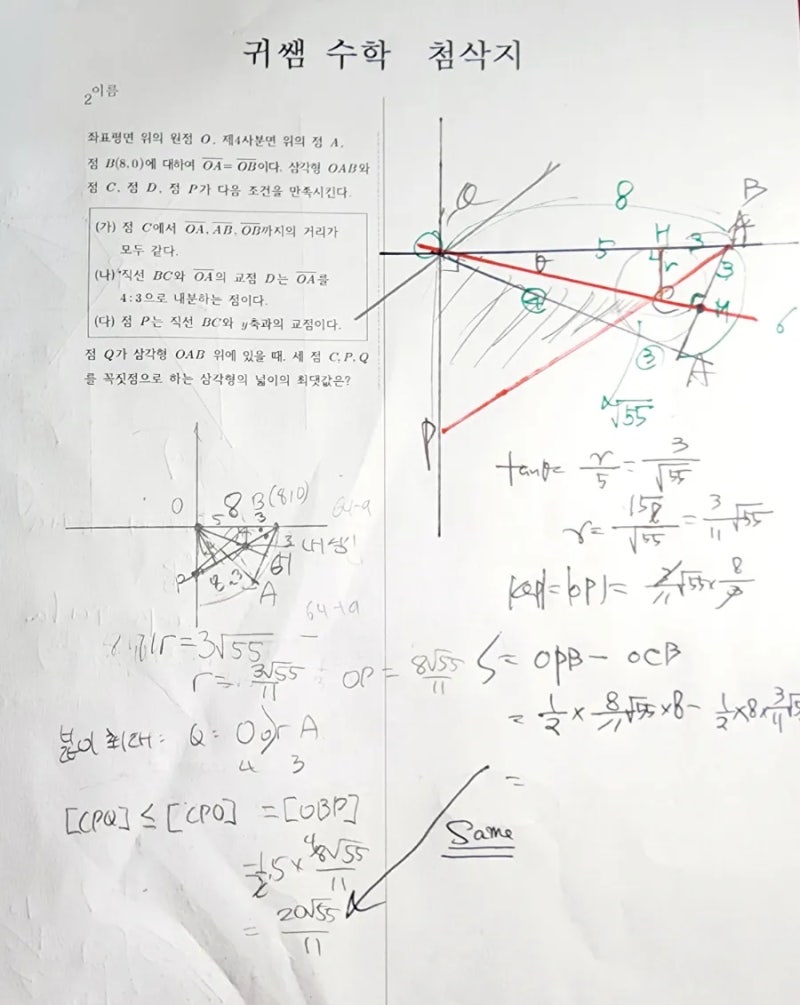 귀쌤 수학 첨삭지
2이름
좌표평면 위의 원점 O, 제4사분면 위의 점 A,
점 B(8,0)에 대하여 OA=OB이다. 삼각형 OAB와
점 C, 점 D, 점 P가 다음 조건을 만족시킨다.
(가) 점 C에서 OA, AB, OB까지의 거리가
모두 같다.
(나) 직선 BC와 OA의 교점 D는 OA를
4:3으로 내분하는 점이다.
(다) 점 P는 직선 BC와 y축과의 교점이다.
점 Q가 삼각형 OAB 위에 있을 때, 세 점 C, P, Q
를 꼭짓점으로 하는 삼각형의 넓이의 최댓값은?
O 8 B(8,0)
5 3
3 내심
P 8 3 A
64-9
64+9
r=3√55
r=3√55/11 OP=8√55/11
넓이 최대: Q: O or A
4 3
[CPQ]≤[CPO] =[OBP]
=1/2·5×8√55/11
=20√55/11
Q 8 B
5 H 3 A
θ r 3
C M
④ ③ A
6
√55
P
tanθ=r/5=3/√55
r=15/√55=3/11√55
|OP|=
S=OPB-OCB
=1/2×8/11√55×8-1/2×8×3/11√55
=
Same